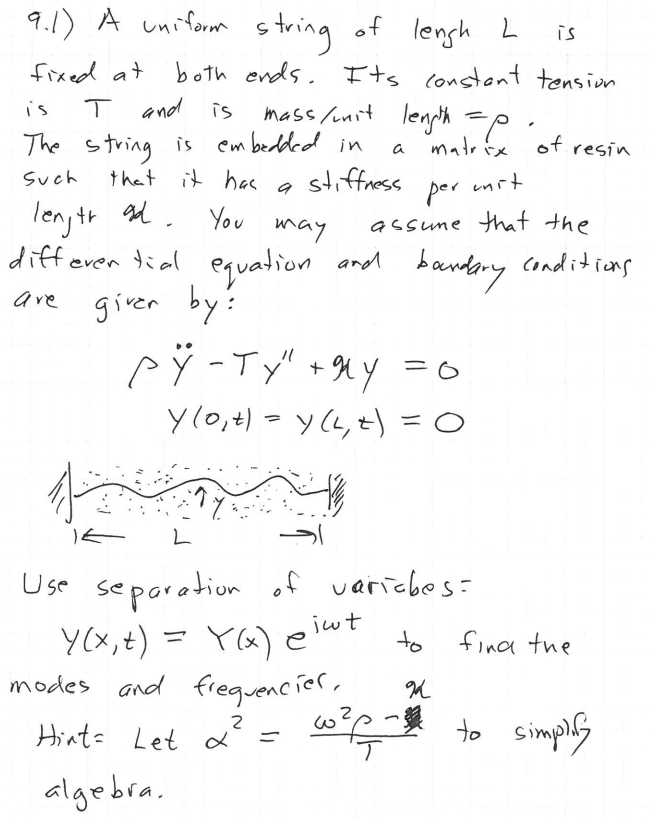 9.1) A uniform string of lengh L is
fixed at both ends. Its constant tension
is T and is mass/unit length = ρ.
The string is embedded in a matrix of resin
such that it has a stiffness per unit
length ϰ. You may assume that the
differential equation and boundary conditions
are given by:
ρÿ - Ty" + ϰy = 0
y(0,t) = y(L,t) = 0
y
L
Use separation of variables:
y(x,t) = Y(x) e^{iωt} to find the
modes and frequencies.
Hint: Let α² = (ω²ρ - ϰ)/T to simplify
algebra.